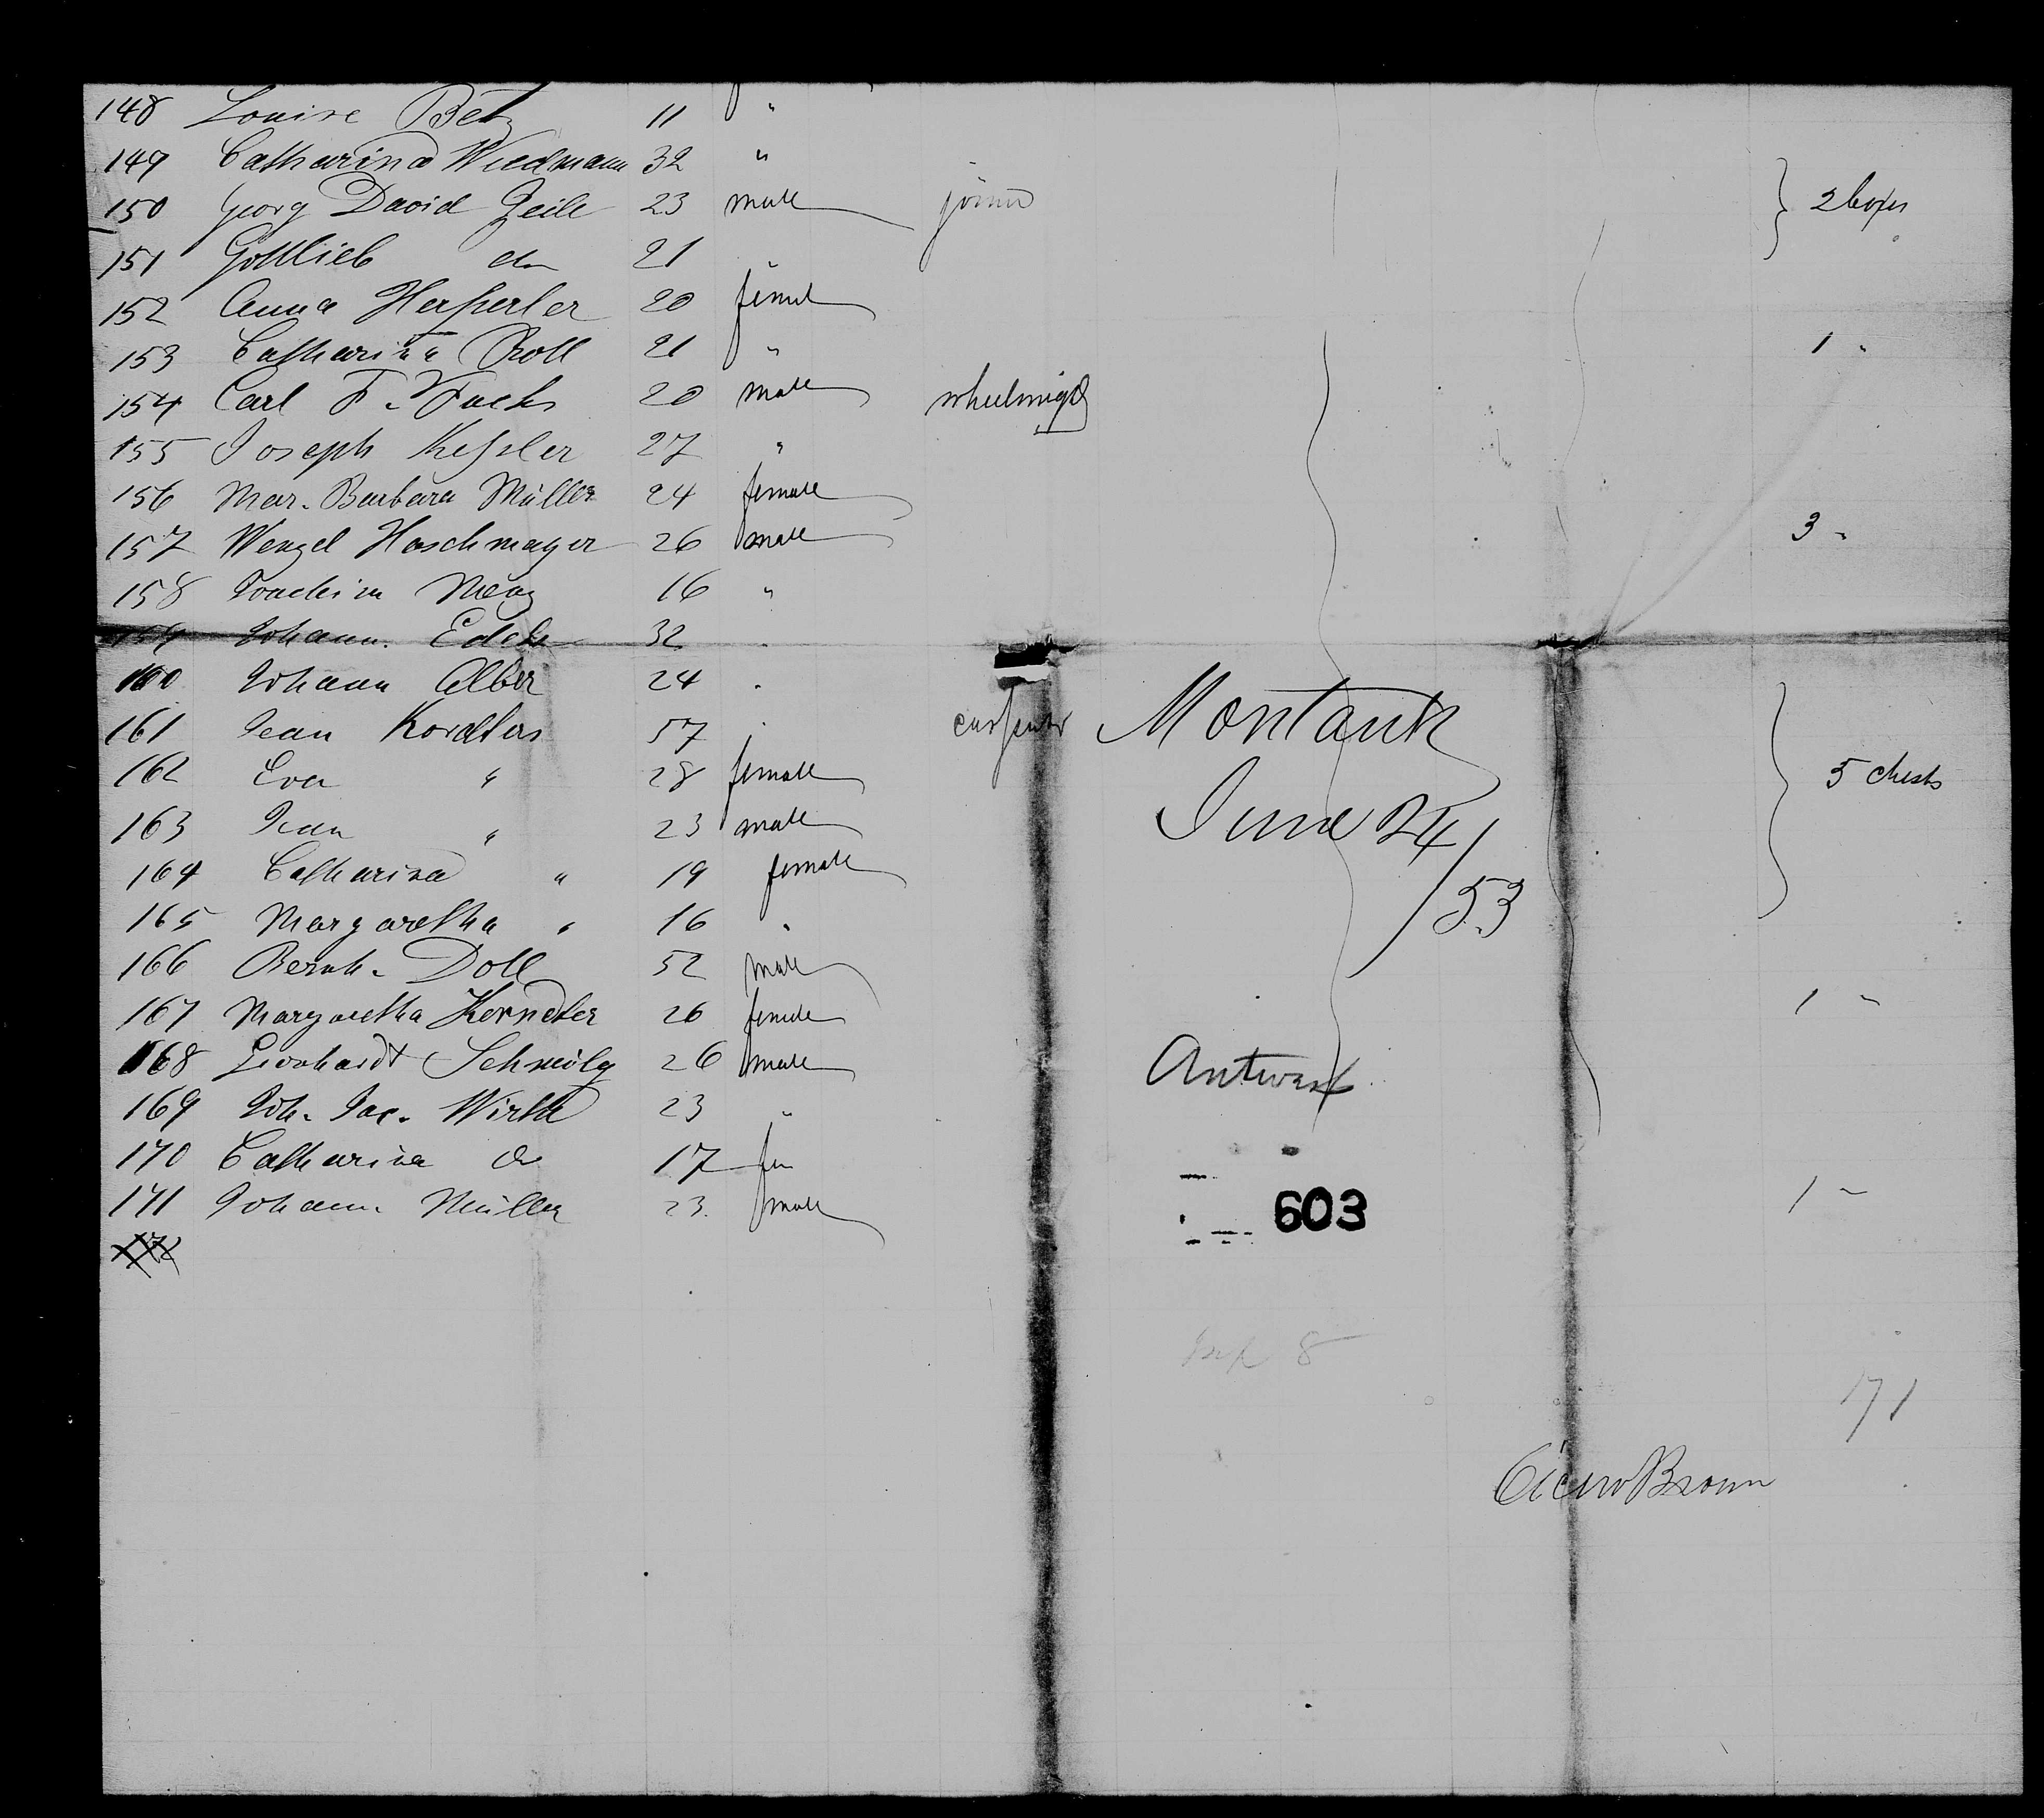 148 Louise Betz 11 "
149 Catharina Wiedmann 32 "
150 Georg David Zeile 23 male joiner } 2 boxes
151 Gottlieb do 21 "
152 Anna Hesperler 20 femal
153 Catharina Croll 21 " 1 "
154 Carl F. Fuchs 20 male wheelwright
155 Joseph Keßler 27 "
156 Mar. Barbara Müller 24 female
157 Wenzel Haschmayer 26 male 3 "
158 Joachim Menz 16 "
159 Johann. 32 "
160 Johann Alber 24 "
161 Jean Kordters 57 " carpenter Montauk
162 Eva " 28 female } 5 chests
163 Jean " 23 male June 24/53
164 Catharina " 19 female
165 Margaretha " 16 "
166 Bernh. Doll 52 male
167 Margaretha Kerndter 26 female 1 "
168 Leonhardt 26 male Antwerp
169 Joh. Jac. Wirth 23 "
170 Catharina do 17 fem
171 Johann. Müller 23. male 603 1 "
8
171
Cicero Brown